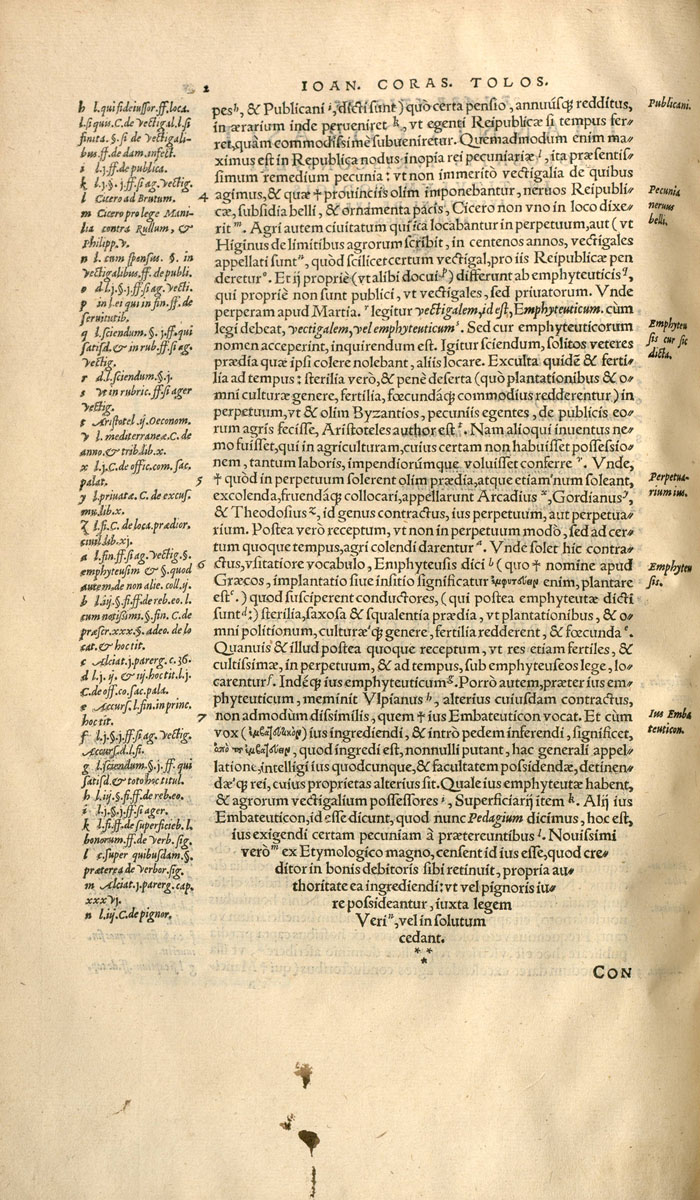 2 IOAN. CORAS. TOLOS.
h l. qui fideiussor. ff. loca.
l. si quis. C. de vectigal. l. si
finita. §. si de vectigali-
bus. ff. de dam. infect.
i l. j. ff. de publica.
k l. j. §. j. ff. si ag. vectig.
l Cicero ad Brutum.
m Cicero pro lege Mani-
lia contra Rullum, &
Philipp. v.
n l. cum sponsus. §. in
vectigalibus. ff. de publi.
o d. l. j. §. j. ff. si ag. vecti.
p in l. ei qui in fin. ff. de
seruitutib.
q l. sciendum. §. j. ff. qui
satisd. & in rub. ff. si ag.
vectig.
r d. l. sciendum. §. j.
s vt in rubric. ff. si ager
vectig.
t Aristotel. ij. Oeconom.
v l. mediterraneæ. C. de
anno. & trib. lib. x.
x l. j. C. de offic. com. sac.
palat.
y l. priuatæ. C. de excus.
mu. lib. x.
z l. fi. C. de loca. prædior.
ciuil. lib. xj.
a l. fin. ff. si ag. vectig. §.
emphyteusim & §. quod
autem. de non alie. coll. ij.
b l. iij. §. si. ff. de reb. eo. l.
cum notissimi. §. fin. C. de
præscr. xxx. §. adeo. de lo
cat. & hoc tit.
c Alciat. j. parerg. c. 36.
d l. j. ij. & iij. hoc tit. l. j.
C. de off. co. sac. pala.
e Accurs. l. fin. in princ.
hoc tit.
f l. j. §. j. ff. si ag. vectig.
Accurs. d. l. si.
g l. sciendum. §. j. ff. qui
satisd. & toto hoc titul.
h l. iij. §. si. ff. de reb. eo.
i l. j. §. j. ff. si ager.
k l. si. ff. de superficieb. l.
bonorum. ff. de verb. sig.
l c. super quibusdam. §.
præterea de verbor. sig.
m Alciat. j. parerg. cap.
xxxvj.
n l. iij. C. de pignor.
pesʰ, & Publicani ⁱ, dicti sunt) quò certa pensio, annuúsq; redditus,
in ærarium inde perueniret ᵏ, vt egenti Reipublicæ si tempus fer-
ret, quàm commodissimè subueniretur. Quemadmodum enim ma-
ximus est in Republica nodus inopia rei pecuniariæ ˡ, ita præsentis-
simum remedium pecunia: vt non immeritò vectigalia de quibus
4 agimus, & quæ † prouinciis olim imponebantur, neruos Reipubli-
cæ, subsidia belli, & ornamenta pacis, Cicero non vno in loco dixe-
rit ᵐ. Agri autem ciuitatum qui ita locabantur in perpetuum, aut (vt
Higinus de limitibus agrorum scribit, in centenos annos, vectigales
appellati suntⁿ, quòd scilicet certum vectigal, pro iis Reipublicæ pen
deretur ᵒ. Et ij propriè (vt alibi docui ᵖ) differunt ab emphyteuticis ᑫ,
qui propriè non sunt publici, vt vectigales, sed priuatorum. Vnde
perperam apud Martia. ʳ legitur vectigalem, id est, Emphyteuticum. cùm
legi debeat, vectigalem, vel emphyteuticum ˢ. Sed cur emphyteuticorum
nomen acceperint, inquirendum est. Igitur sciendum, solitos veteres
prædia quæ ipsi colere nolebant, aliis locare. Exculta quidē & ferti-
lia ad tempus: sterilia verò, & penè deserta (quò plantationibus & o-
mni culturæ genere, fertilia, fœcundáq; commodius redderentur) in
perpetuum, vt & olim Byzantios, pecuniis egentes, de publicis eo-
rum agris fecisse, Aristoteles author est ᵗ. Nam alioqui inuentus ne-
mo fuisset, qui in agriculturam, cuius certam non habuisset possessio-
nem, tantum laboris, impendiorúmque voluisset conferre ᵛ. Vnde,
5 † quòd in perpetuum solerent olim prædia, atque etiā num soleant,
excolenda, fruendáq; collocari, appellarunt Arcadius ˣ, Gordianusʸ,
& Theodosius ᶻ, id genus contractus, ius perpetuum, aut perpetua-
rium. Postea verò receptum, vt non in perpetuum modò, sed ad cer-
tum quoque tempus, agri colendi darentur ᵃ. Vnde solet hic contra-
6 ctus, vsitatiore vocabulo, Emphyteusis dici ᵇ (quo † nomine apud
Græcos, implantatio siue insitio significatur ἐμφυτεύειν enim, plantare
est ᶜ.) quod susciperent conductores, (qui postea emphyteutæ dicti
sunt ᵈ:) sterilia, saxosa & squalentia prædia, vt plantationibus, & o-
mni politionum, culturæ'q; genere, fertilia redderent, & fœcunda ᵉ.
Quanuis & illud postea quoque receptum, vt res etiam fertiles, &
cultissimæ, in perpetuum, & ad tempus, sub emphyteuseos lege, lo-
carentur ᶠ. Indéq; ius emphyteuticumᵍ. Porrò autem, præter ius em-
phyteuticum, meminit Vlpianus ʰ, alterius cuiusdam contractus,
7 non admodùm dissimilis, quem † ius Embateuticon vocat. Et cùm
vox (ἐμβατευτικὸν) ius ingrediendi, & intrò pedem inferendi, significet,
ἀπὸ τοῦ ἐμβατεύειν, quod ingredi est, nonnulli putant, hac generali appel-
latione, intelligi ius quodcunque, & facultatem possidendæ, detinen-
dæ'q; rei, cuius proprietas alterius sit. Quale ius emphyteutæ habent,
& agrorum vectigalium possessores ⁱ, Superficiarij item ᵏ. Alij ius
Embateuticon, id esse dicunt, quod nunc Pedagium dicimus, hoc est,
ius exigendi certam pecuniam à prætereuntibus ˡ. Nouissimi
veròᵐ ex Etymologico magno, censent id ius esse, quod cre-
ditor in bonis debitoris sibi retinuit, propria au-
thoritate ea ingrediendi: vt vel pignoris iu-
re possideantur, iuxta legem
Veriⁿ, vel in solutum
cedant.
* *
*
CON
Publicani.
Pecunia
neruus
belli.
Emphyteu
sis cur sic
dicta.
Perpetua-
rium ius.
Emphyteu
sis.
Ius Emba
teuticon.